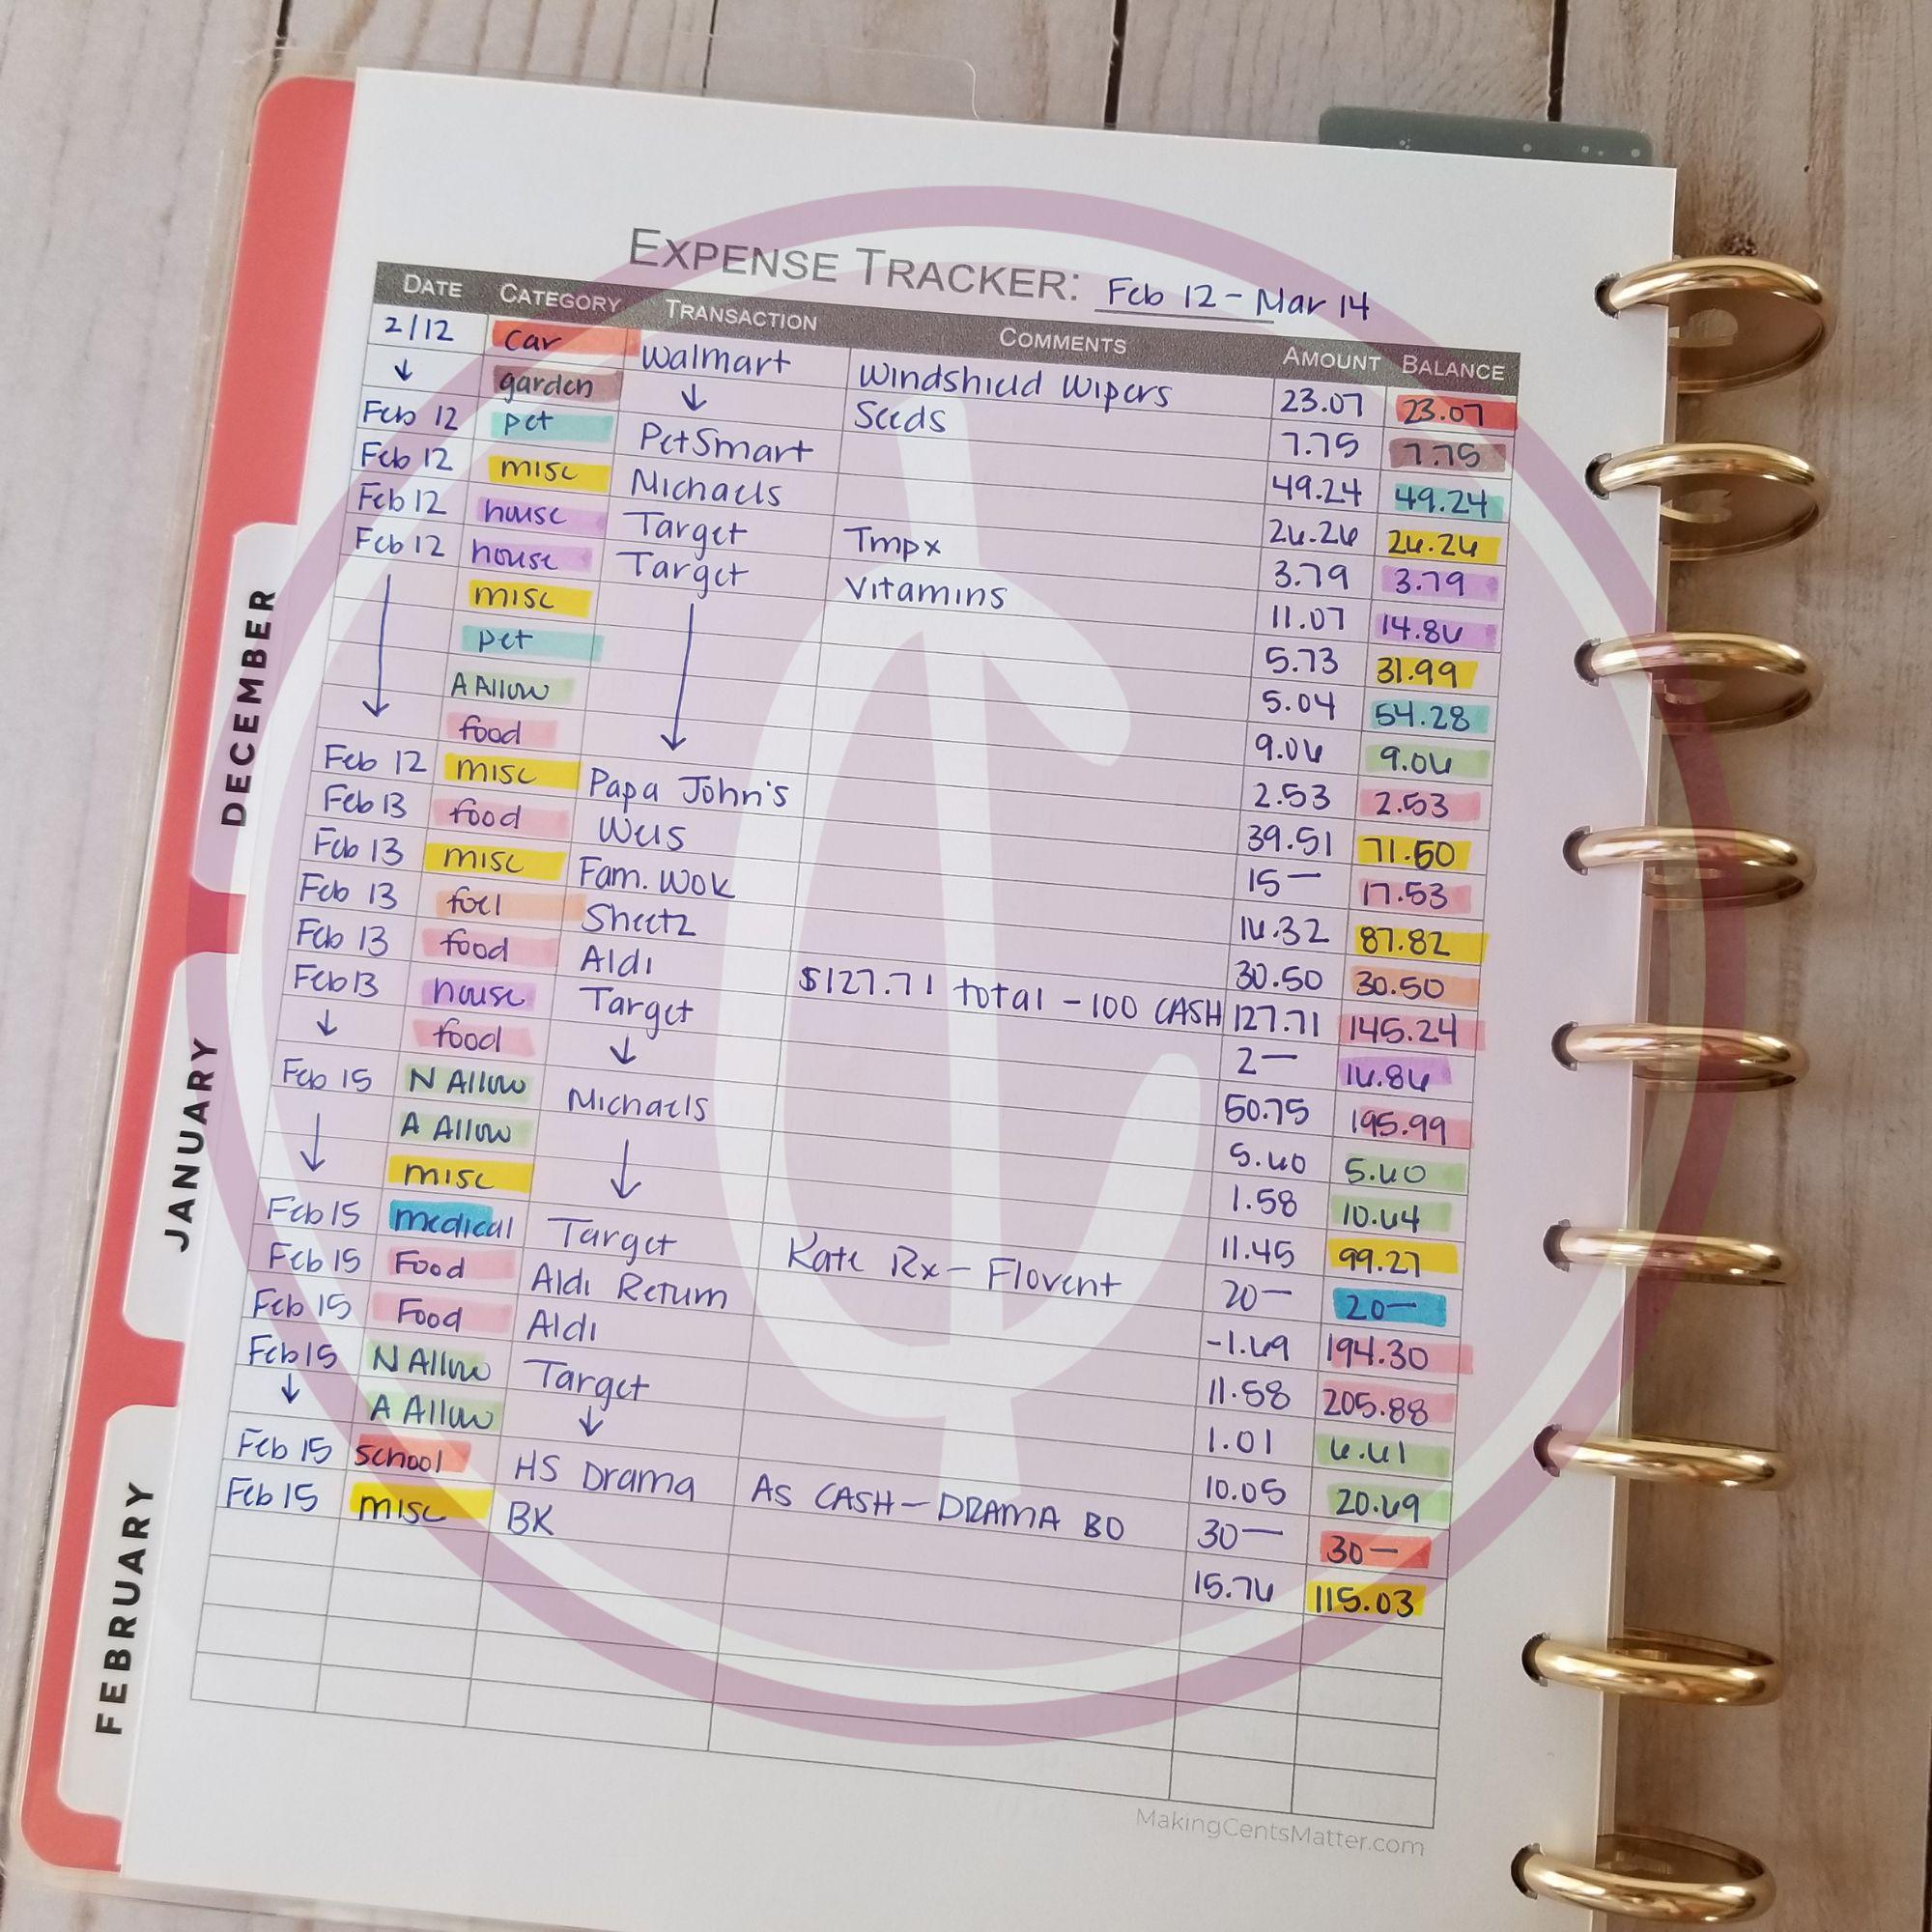 EXPENSE TRACKER: Feb 12 - Mar 14
DATE CATEGORY TRANSACTION COMMENTS AMOUNT BALANCE
2/12 car Walmart Windshield Wipers 23.07 23.07
↓ garden ↓ Seeds 7.75 7.75
Feb 12 pet PetSmart 49.24 49.24
Feb 12 misc Michaels 26.26 26.26
Feb 12 house Target Tmpx 3.79 3.79
Feb 12 house Target Vitamins 11.07 14.86
misc 5.73 31.99
pet 5.04 54.28
A Allow 9.06 9.06
food 2.53 2.53
Feb 12 misc Papa John's 39.51 71.50
Feb 13 food Weis 15— 17.53
Feb 13 misc Fam. Wok 16.32 87.82
Feb 13 fuel Sheetz 30.50 30.50
Feb 13 food Aldi $127.71 total - 100 CASH 127.71 145.24
Feb 13 house Target 2— 16.86
↓ food ↓ 50.75 195.99
Feb 15 N Allow Michaels 5.60 5.60
A Allow 1.58 10.64
misc 11.45 99.27
Feb 15 medical Target Kate Rx - Flovent 20— 20—
Feb 15 Food Aldi Return -1.69 194.30
Feb 15 Food Aldi 11.58 205.88
Feb 15 N Allow Target 1.01 6.61
↓ A Allow ↓ 10.05 20.69
Feb 15 school HS Drama As CASH - DRAMA BO 30— 30—
Feb 15 misc BK 15.76 115.03
MakingCentsMatter.com
DECEMBER
JANUARY
FEBRUARY